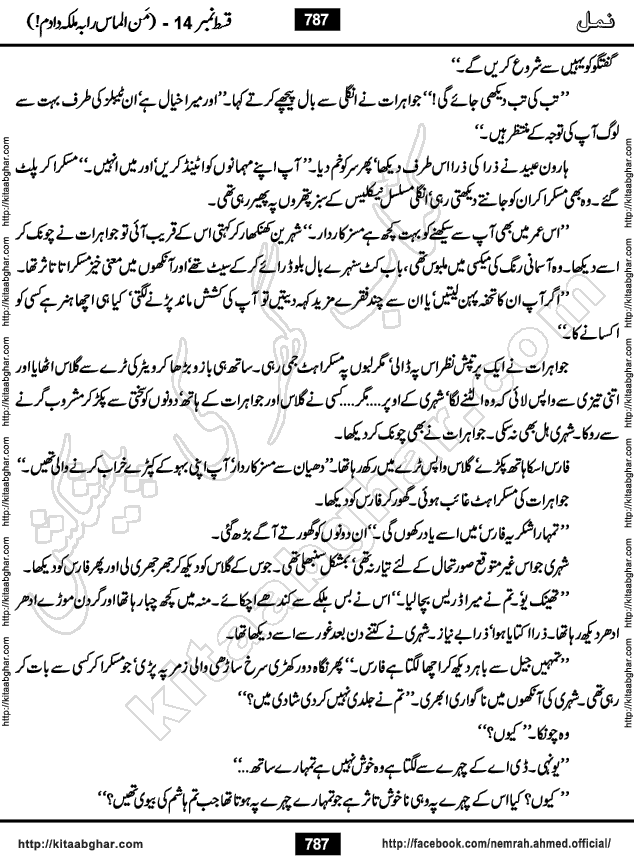 نمل
787
قسط نمبر 14 - (مَن الماس رابہ ملکہ دادم!)
گفتگو کو یہیں سے شروع کریں گے۔‘‘
’’تب کی تب دیکھی جائے گی!‘‘ جواہرات نے انگلی سے بال پیچھے کرتے کہا۔ ’’اور میرا خیال ہے‘ ان ٹیبلز کی طرف بہت سے
لوگ آپ کی توجہ کے منتظر ہیں۔‘‘
ہارون عبید نے ذرا کی ذرا اس طرف دیکھا‘ پھر سر کو خم دیا۔ ’’آپ اپنے مہمانوں کو اٹینڈ کریں‘ اور میں انہیں۔‘‘ مسکرا کر پلٹ
گئے۔ وہ بھی مسکرا کر ان کو جاتے دیکھتی رہی‘ انگلی مسلسل نیکلیس کے سبز پتھروں پہ پھیر رہی تھی۔
’’اس عمر میں بھی آپ سے سیکھنے کو بہت کچھ ہے مسز کاردار۔‘‘ شہرین کھنکھار کر کہتی اس کے قریب آئی تو جواہرات نے چونک کر
اسے دیکھا۔ وہ آسمانی رنگ کی میکسی میں ملبوس تھی‘ باب کٹ سنہرے بال بلو ڈرائے کر کے سیٹ تھے‘ اور آنکھوں میں معنی خیز مسکراتا تاثر تھا۔
’’اگر آپ ان کا تحفہ پہن لیتیں‘ یا ان سے چند فقرے مزید کہہ دیتیں تو آپ کی کشش ماند پڑنے لگتی‘ کیا ہی اچھا ہنر ہے کسی کو
اکسانے کا۔‘‘
جواہرات نے ایک پر تپش نظر اس پہ ڈالی‘ مگر لبوں پہ مسکراہٹ جمی رہی۔ ساتھ ہی بازو بڑھا کر ویٹر کی ٹرے سے گلاس اٹھایا اور
اتنی تیزی سے واپس لائی کہ وہ الٹنے لگا‘ شہری کے اوپر....مگر....کسی نے گلاس اور جواہرات کے ہاتھ‘ دونوں کو سختی سے پکڑ کر مشروب گرنے
سے روکا۔ شہری ہل بھی نہ سکی۔ جواہرات نے بھی چونک کر دیکھا۔
فارس اسکا ہاتھ پکڑے‘ گلاس واپس ٹرے میں رکھ رہا تھا۔ ’’دھیان سے مسز کاردار‘ آپ اپنی بہو کے کپڑے خراب کرنے والی تھیں۔‘‘
جواہرات کی مسکراہٹ غائب ہوئی۔ گھور کر فارس کو دیکھا۔
’’تمہارا شکریہ فارس‘ میں اسے یاد رکھوں گی۔‘‘ ان دونوں کو گھورتے آگے بڑھ گئی۔
شہری جو اس غیر متوقع صورتحال کے لئے تیار نہ تھی‘ بمشکل سنبھلی تھی۔ جوس کے گلاس کو دیکھ کر جھر جھری لی اور پھر فارس کو دیکھا۔
’’تھینک یو۔ تم نے میرا ڈریس بچالیا۔‘‘ اس نے بس ہلکے سے کندھے اچکائے۔ منہ میں کچھ چبا رہا تھا اور گردن موڑے ادھر
ادھر دیکھ رہا تھا۔ ذرا اکتایا ہوا‘ ذرا بے نیاز۔ شہری نے کتنے دن بعد غور سے اسے دیکھا تھا۔
’’تمہیں جیل سے باہر دیکھ کر اچھا لگتا ہے فارس۔‘‘ پھر نگاہ دور کھڑی سرخ ساڑھی والی زمر پہ پڑی‘ جو مسکرا کر کسی سے بات کر
رہی تھی۔ شہری کی آنکھوں میں ناگواری ابھری۔ ’’تم نے جلدی نہیں کر دی شادی میں؟‘‘
وہ چونکا۔ ’’کیوں؟‘‘
’’یونہی۔ ڈی اے کے چہرے سے لگتا ہے وہ خوش نہیں ہے تمہارے ساتھ...‘‘
’’کیوں؟ کیا اس کے چہرے پہ وہی نا خوش تاثر ہے جو تمہارے چہرے پہ ہوتا تھا جب تم ہاشم کی بیوی تھیں؟‘‘
http://kitaabghar.com
787
http://facebook.com/nemrah.ahmed.official/
http://kitaabghar.com http://kitaabghar.com http://kitaabghar.com http://kitaabghar.com http://kitaabghar.com http://kitaabghar.com
http://kitaabghar.com http://kitaabghar.com http://kitaabghar.com http://kitaabghar.com http://kitaabghar.com http://kitaabghar.com
کتاب گھر کی پیشکش
kitaabghar.com